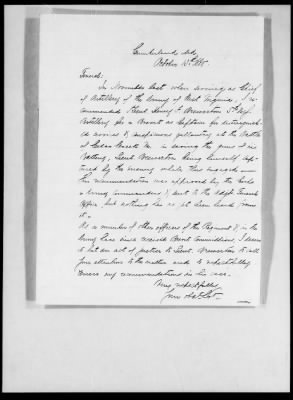 Cumberland Md.
October 12th 1865.
General:
In November last when serving as Chief
of Artillery of the Army of West Virginia, I re-
commended Lieut Henry F. Brewerton 5th U.S.
Artillery for a Brevet as Captain for distinguish-
ed services & conspicuous gallantry at the battle
of Cedar Creek Va. in saving the guns of his
Battery, Lieut Brewerton being himself cap-
tured by the enemy while thus engaged
this recommendation was approved by the
Army Commanders & sent to the Adjt General's
Office, but nothing has as yet been heard from
it.
As a number of other officers of the Regiment & in the
Army have since received Brevet Commissions, I deem
it but an act of justice to Lieut. Brewerton to call
your attention to the matter and to respectfully
renew my recommendation in his case.
Very respectfully
Your Obt. Svt.